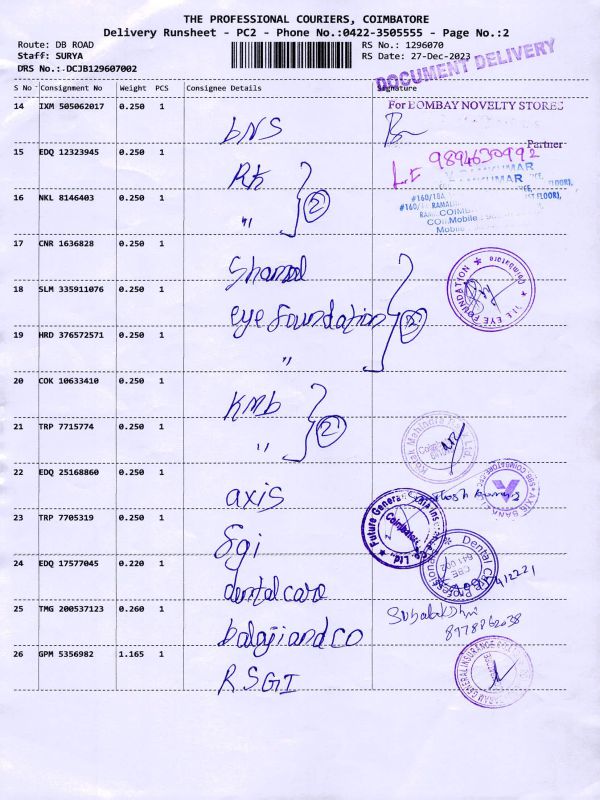 THE PROFESSIONAL COURIERS, COIMBATORE
Delivery Runsheet - PC2 - Phone No.:0422-3505555 - Page No.:2
Route: DB ROAD RS No.: 1296070
Staff: SURYA RS Date: 27-Dec-2023
DRS No.: DCJB129607002
DOCUMENT DELIVERY
S No Consignment No Weight PCS Consignee Details Signature
14 IXM 505062017 0.250 1
For BOMBAY NOVELTY STORES
bNS
Partner
15 EDQ 12323945 0.250 1
9894630992
RK
16 NKL 8146403 0.250 1
" 2
17 CNR 1636828 0.250 1
18 SLM 335911076 0.250 1
eye foundation
THE EYE FOUNDATION * Coimbatore *
19 HRD 376572571 0.250 1
"
20 COK 10633410 0.250 1
KMB
21 TRP 7715774 0.250 1
" 2
Kotak Mahindra
22 EDQ 25168860 0.250 1
axis
AXIS BANK
23 TRP 7705319 0.250 1
Future Generali India Insurance Co. Ltd.
Coimbatore
fgi
24 EDQ 17577045 0.220 1
Dental Care Professionals
CBE
641 002
dental care
25 TMG 200537123 0.260 1
balaji and co
26 GPM 5356982 1.165 1
RSGI